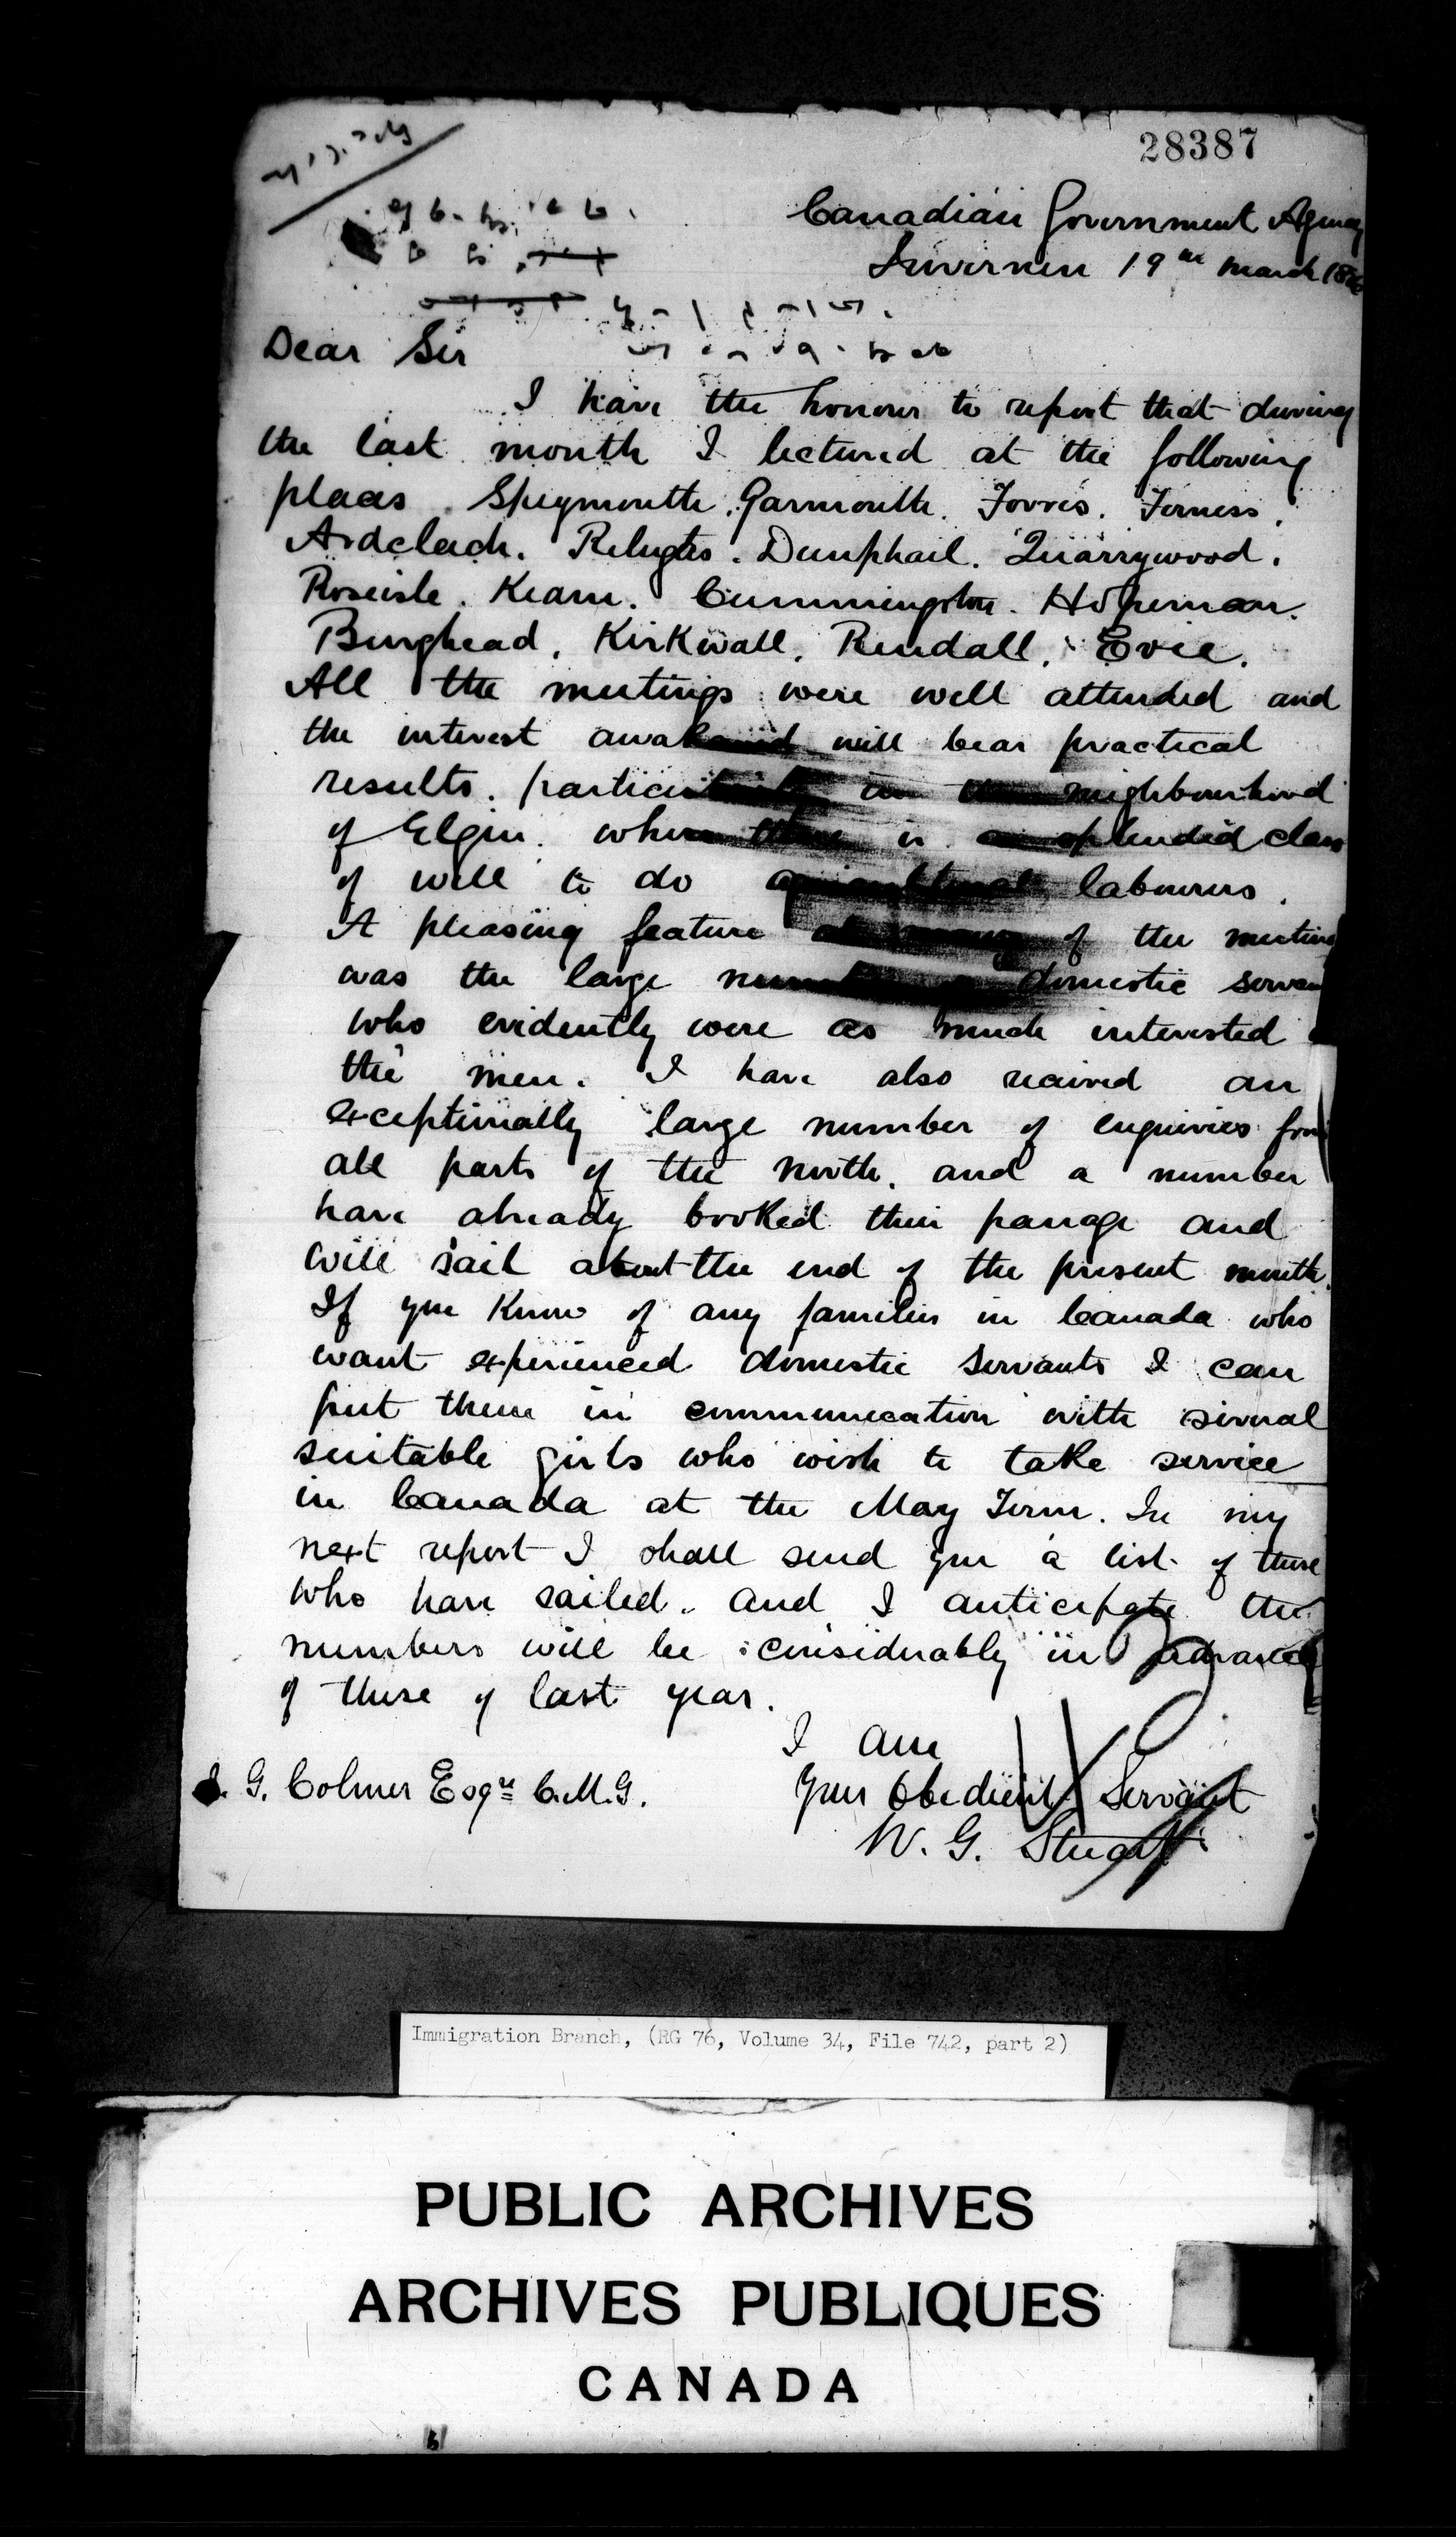 28387
Canadian Government Agency
Inverness 19th March
Dear Sir
I have the honour to report that during
the last month I lectured at the following
places. Speymouth. Garmouth. Forres. Ferness.
Ardclach. Relugas. Dunphail. Quarrywood.
Roseisle. Keam. Cummingston. Hopeman.
Burghead. Kirkwall. Rendall. Evie.
All the meetings were well attended and
the interest awakened will bear practical
results. particularly in the neighbourhood
of Elgin. where there is a splendid class
of well to do agricultural labourers.
A pleasing feature at many of the meetings
was the large number of domestic servants
who evidently were as much interested as
the men. I have also received an
exceptionally large number of enquiries from
all parts of the north. and a number
have already booked their passage and
will sail about the end of the present month.
If you know of any families in Canada who
want experienced domestic servants I can
put them in communication with several
suitable girls who wish to take service
in Canada at the May Term. In my
next report I shall send you a list of those
who have sailed. and I anticipate the
numbers will be considerably in advance
of those of last year.
I am
Your Obedient Servant
W. G. Stuart
J. G. Colmer Esqre C.M.G.
Immigration Branch, (RG 76, Volume 34, File 742, part 2)
PUBLIC ARCHIVES
ARCHIVES PUBLIQUES
CANADA